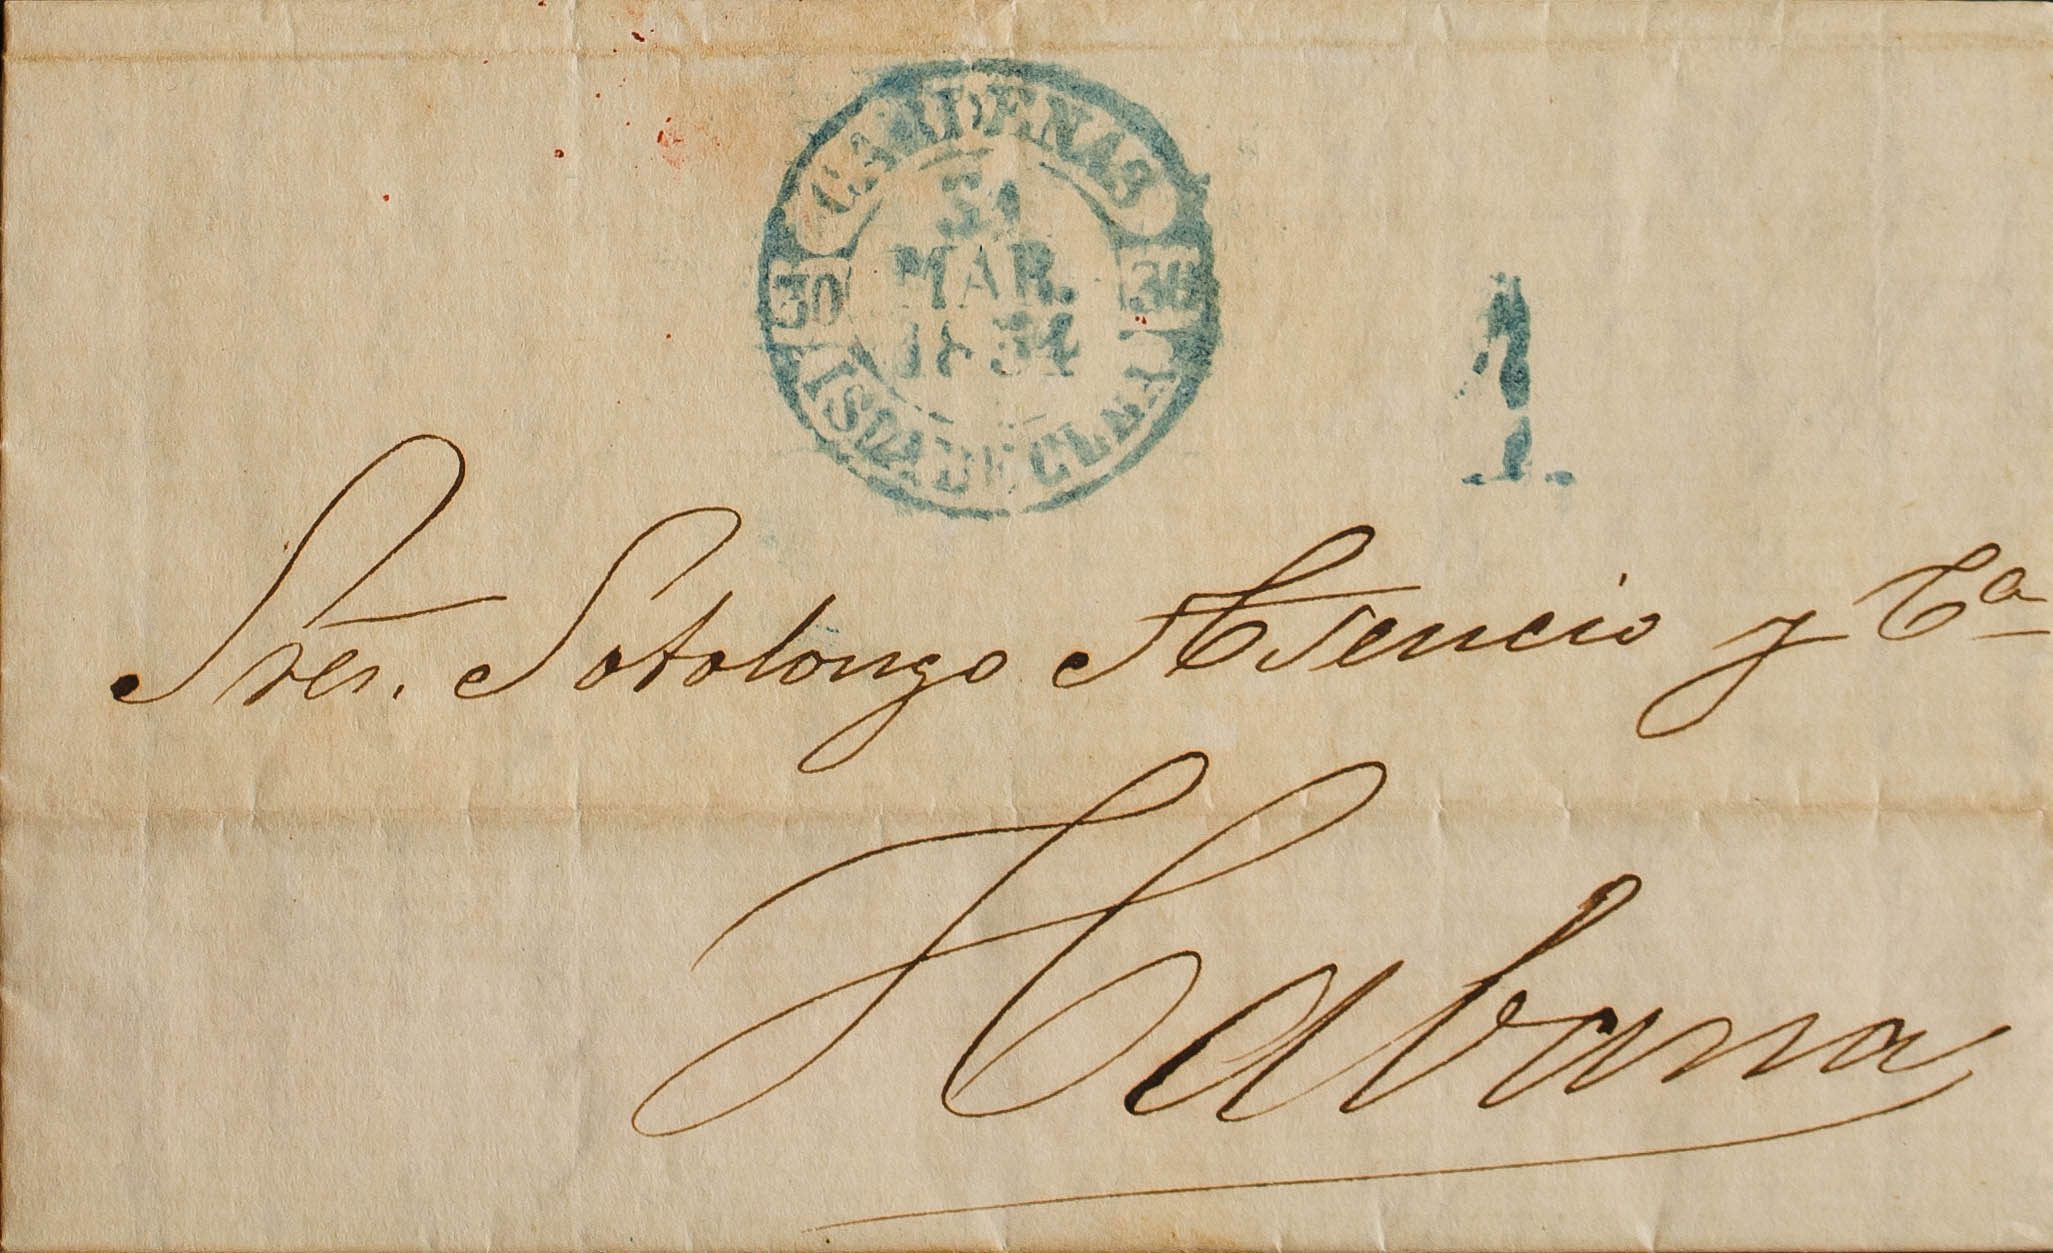 CARDENAS
31
MAR.
1854
30 30
ISLA DE CUBA
1
Sres. Sotolongo Asencio y Cª
Habana